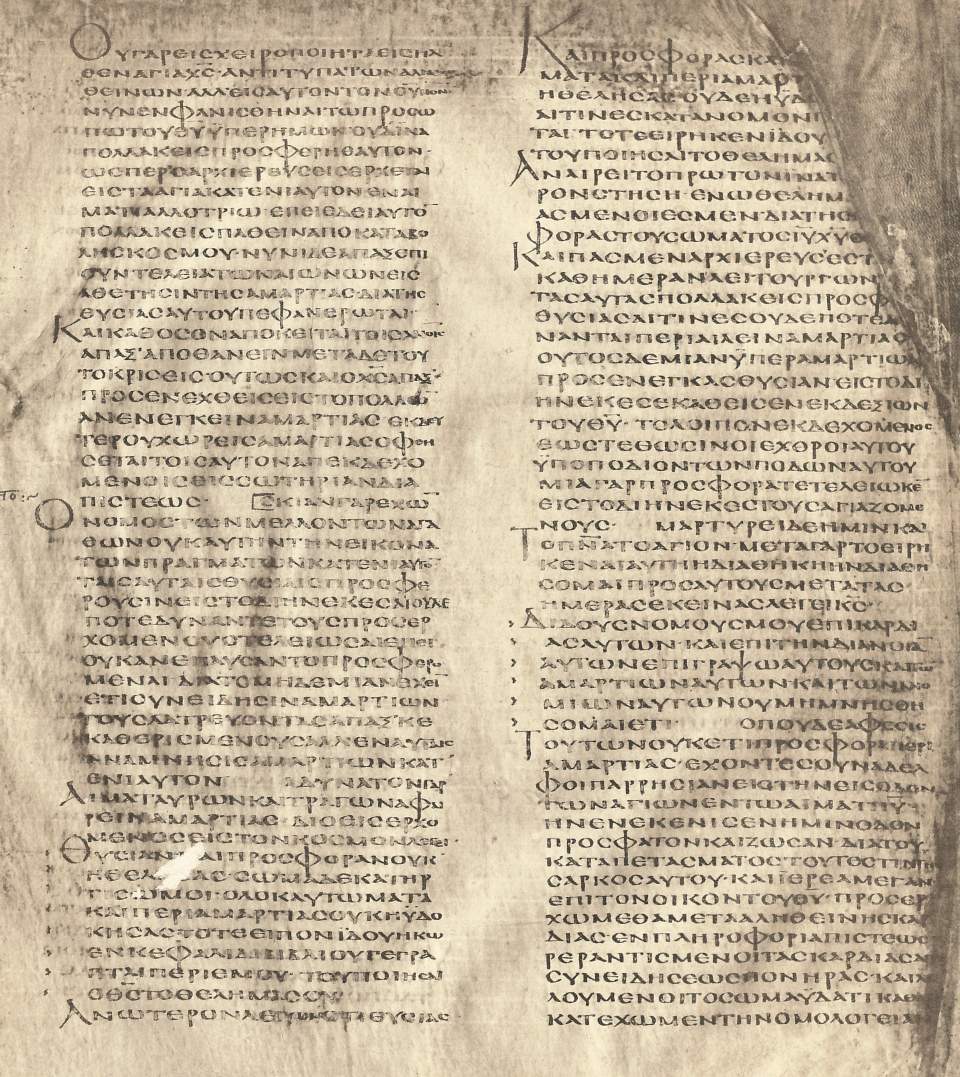 ΟΥΓΑΡΕΙΣΧΕΙΡΟΠΟΙΗΤΑΕΙΣΗΛ
ΘΕΝΑΓΙΑΧΣ·ΑΝΤΙΤΥΠΑΤΩΝΑΛΗ
ΘΕΙΝΩΝΑΛΛΕΙΣΑΥΤΟΝΤΟΝΟΥΝΟΝ
ΝΥΝΕΝΦΑΝΙΣΘΗΝΑΙΤΩΠΡΟΣΩ
ΠΩΤΟΥΘΥΫΠΕΡΗΜΩΝΟΥΔΙΝΑ
ΠΟΛΛΑΚΕΙΣΠΡΟΣΦΕΡΗΕΑΥΤΟΝ·
ΩΣΠΕΡΟΑΡΧΙΕΡΕΥΣΕΙΣΕΡΧΕΤΑΙ
ΕΙΣΤΑΑΓΙΑΚΑΤΕΝΙΑΥΤΟΝΕΝΑΙ
ΜΑΤΙΑΛΛΟΤΡΙΩ·ΕΠΕΙΕΔΕΙΑΥΤΟ
ΠΟΛΛΑΚΕΙΣΠΑΘΕΙΝΑΠΟΚΑΤΑΒΟ
ΛΗΣΚΟΣΜΟΥ·ΝΥΝΙΔΕΑΠΑΞΕΠΙ
ΣΥΝΤΕΛΕΙΑΤΩΝΑΙΩΝΩΝΕΙΣ
ΑΘΕΤΗΣΙΝΤΗΣΑΜΑΡΤΙΑΣΔΙΑΤΗΣ
ΘΥΣΙΑΣΑΥΤΟΥΠΕΦΑΝΕΡΩΤΑΙ·
ΚΑΙΚΑΘΟΣΟΝΑΠΟΚΕΙΤΑΙΤΟΙΣΑΝΟΙΣ
ΑΠΑΞ'ΑΠΟΘΑΝΕΙΝΜΕΤΑΔΕΤΟΥ
ΤΟΚΡΙΣΕΙΣΟΥΤΩΣΚΑΙΟΧΣΑΠΑΞ·
ΠΡΟΣΕΝΕΧΘΕΙΣΕΙΣΤΟΠΟΛΛΩ
ΑΝΕΝΕΓΚΕΙΝΑΜΑΡΤΙΑΣ ΕΚΔΕΥ
ΤΕΡΟΥΧΩΡΕΙΣΑΜΑΡΤΙΑΣΟΦΘΗ
ΣΕΤΑΙΤΟΙΣΑΥΤΟΝΑΠΕΚΔΕΧΟ
ΜΕΝΟΙΣΕΙΣΣΩΤΗΡΙΑΝΔΙΑ
ΠΙΣΤΕΩΣ· ΣΚΙΑΝΓΑΡΕΧΩ
ΟΝΟΜΟΣΤΩΝΜΕΛΛΟΝΤΩΝΑΓΑ
ΘΩΝΟΥΚΑΥΤΗΝΤΗΝΕΙΚΟΝΑ
ΤΩΝΠΡΑΓΜΑΤΩΝΚΑΤΕΝΙΑΥΤΟ
ΤΑΙΣΑΥΤΑΙΣΘΥΣΙΑΙΣΠΡΟΣΦΕ
ΡΟΥΣΙΝΕΙΣΤΟΔΙΗΝΕΚΕΣΑΙΟΥΔΕ
ΠΟΤΕΔΥΝΑΝΤΕΤΟΥΣΠΡΟΣΕΡ
ΧΟΜΕΝΟΥΣΤΕΛΕΙΩΣΑΙΕΠΕΙ
ΟΥΚΑΝΕΠΑΥΣΑΝΤΟΠΡΟΣΦΕΡΟ
ΜΕΝΑΙ ΔΙΑΤΟΜΗΔΕΜΙΑΝΕΧΕΙ
ΕΤΙΣΥΝΕΙΔΗΣΙΝΑΜΑΡΤΙΩΝ
ΤΟΥΣΛΑΤΡΕΥΟΝΤΑΣΑΠΑΞ'ΚΕ
ΚΑΘΕΡΙΣΜΕΝΟΥΣΑΛΛΕΝΑΥΤΑΙΣ
ΑΝΑΜΝΗΣΙΣΑΜΑΡΤΙΩΝΚΑΤ
ΕΝΙΑΥΤΟΝ ΑΔΥΝΑΤΟΝΓΑΡ
ΑΙΜΑΤΑΥΡΩΝΚΑΙΤΡΑΓΩΝΑΦΑΙ
ΡΕΙΝΑΜΑΡΤΙΑΣ ΔΙΟΕΙΣΕΡΧΟ
ΜΕΝΟΣΕΙΣΤΟΝΚΟΣΜΟΝΛΕΓΕΙ
ΘΥΣΙΑΝ ΑΙΠΡΟΣΦΟΡΑΝΟΥΚ
ΗΘΕΛ ΑΣ·ΣΩΜΑΔΕΚΑΤΗΡ
ΤΙΣΩΜΟΙ·ΟΛΟΚΑΥΤΩΜΑΤΑ
ΚΑΙΠΕΡΙΑΜΑΡΤΙΑΣΟΥΚΗΫΔΟ
ΚΗΣΑΣΤΟΤΕΕΙΠΟΝΪΔΟΥΗΚΩ
ΕΝΚΕΦΑΛΙΔΙΒΙΒΛΙΟΥΓΕΓΡΑ
ΠΤΑΙΠΕΡΙΕΜΟΥ·ΤΟΥΠΟΙΗΣΑΙ
ΟΘΣΤΟΘΕΛΗΜΑΣΟΥ
ΑΝΩΤΕΡΟΝΛΕΓΩΝΟΤΙΘΥΣΙΑΣ
ΚΑΙΠΡΟΣΦΟΡΑΣΚΑΙ
ΜΑΤΑΚΑΙΠΕΡΙΑΜΑΡΤ
ΗΘΕΛΗΣΑΣ·ΟΥΔΕΗΫΔ
ΑΙΤΙΝΕΣΚΑΤΑΝΟΜΟΝ
ΤΑΙ·ΤΟΤΕΕΙΡΗΚΕΝΪΔΟΥ
ΤΟΥΠΟΙΗΣΑΙΤΟΘΕΛΗΜΑΣ
ΑΝΑΙΡΕΙΤΟΠΡΩΤΟΝΙΝΑΤ
ΡΟΝΣΤΗΣΗ·ΕΝΩΘΕΛΗΜ
ΑΣΜΕΝΟΙΕΣΜΕΝΔΙΑΤΗΣ
ΦΟΡΑΣΤΟΥΣΩΜΑΤΟΣΙΥΧΥ
ΚΑΙΠΑΣΜΕΝΑΡΧΙΕΡΕΥΣΕΣΤ
ΚΑΘΗΜΕΡΑΝΛΕΙΤΟΥΡΓΩΝ
ΤΑΣΑΥΤΑΣΠΟΛΛΑΚΕΙΣΠΡΟΣΦ
ΘΥΣΙΑΣΑΙΤΙΝΕΣΟΥΔΕΠΟΤΕΔ
ΝΑΝΤΑΙΠΕΡΙΑΙΛΕΙΝΑΜΑΡΤΙΑΣ
ΟΥΤΟΣΔΕΜΙΑΝΫΠΕΡΑΜΑΡΤΙΩΝ
ΠΡΟΣΕΝΕΓΚΑΣΘΥΣΙΑΝΕΙΣΤΟΔΙ
ΗΝΕΚΕΣΕΚΑΘΕΙΣΕΝΕΚΔΕΞΙΩΝ
ΤΟΥΘΥ·ΤΟΛΟΙΠΟΝΕΚΔΕΧΟΜΕΝΟΣ
ΕΩΣΤΕΘΩΣΙΝΟΙΕΧΘΡΟΙΑΥΤΟΥ
ΫΠΟΠΟΔΙΟΝΤΩΝΠΟΔΩΝΑΥΤΟΥ
ΜΙΑΓΑΡΠΡΟΣΦΟΡΑΤΕΤΕΛΕΙΩΚΕ
ΕΙΣΤΟΔΙΗΝΕΚΕΣΤΟΥΣΑΓΙΑΖΟΜΕ
ΝΟΥΣ· ΜΑΡΤΥΡΕΙΔΕΗΜΙΝΚΑΙ
ΤΟΠΝΑΤΟΑΓΙΟΝ·ΜΕΤΑΓΑΡΤΟΕΙΡΗ
ΚΕΝΑΙΑΥΤΗΗΔΙΑΘΗΚΗΗΝΔΙΑΘΗ
ΣΟΜΑΙΠΡΟΣΑΥΤΟΥΣΜΕΤΑΤΑΣ
ΗΜΕΡΑΣΕΚΕΙΝΑΣΛΕΓΕΙΚΣ·
ΔΙΔΟΥΣΝΟΜΟΥΣΜΟΥΕΠΙΚΑΡΔΙ
ΑΣΑΥΤΩΝ·ΚΑΙΕΠΙΤΗΝΔΙΑΝΟΙΑ
ΑΥΤΩΝΕΠΙΓΡΑΨΩΑΥΤΟΥΣΚΑΙΤΩ
ΑΜΑΡΤΙΩΝΑΥΤΩΝ·ΚΑΙΤΩΝΑΝΟ
ΜΙΩΝΑΥΤΩΝΟΥΜΗΜΝΗΣΘΗ
ΣΟΜΑΙΕΤΙ· ΟΠΟΥΔΕΑΦΕΣΙΣ
ΤΟΥΤΩΝΟΥΚΕΤΙΠΡΟΣΦΟΡΑΠΕΡΙ
ΑΜΑΡΤΙΑΣ·ΕΧΟΝΤΕΣΟΥΝΑΔΕΛ
ΦΟΙΠΑΡΡΗΣΙΑΝΕΙΣΤΗΝΕΙΣΟΔΟΝ
ΤΩΝΑΓΙΩΝΕΝΤΩΑΙΜΑΤΙΙΥ·
ΗΝΕΝΕΚΕΝΙΣΕΝΗΜΙΝΟΔΟΝ
ΠΡΟΣΦΑΤΟΝΚΑΙΖΩΣΑΝ ΔΙΑΤΟΥ
ΚΑΤΑΠΕΤΑΣΜΑΤΟΣΤΟΥΤΕΣΤΙΝΤΗΣ
ΣΑΡΚΟΣΑΥΤΟΥ·ΚΑΙΪΕΡΕΑΜΕΓΑΝ
ΕΠΙΤΟΝΟΙΚΟΝΤΟΥΘΥ·ΠΡΟΣΕΡ
ΧΩΜΕΘΑΜΕΤΑΑΛΗΘΕΙΝΗΣΚΑΡ
ΔΙΑΣ·ΕΝΠΛΗΡΟΦΟΡΙΑΠΙΣΤΕΩΣ
ΡΕΡΑΝΤΙΣΜΕΝΟΙΤΑΣΚΑΡΔΙΑΣΑΠ
ΣΥΝΕΙΔΗΣΕΩΣΠΟΝΗΡΑΣ·ΚΑΙΛΕ
ΛΟΥΜΕΝΟΙΤΟΣΩΜΑΫΔΑΤΙΚΑΘΑ
ΚΑΤΕΧΩΜΕΝΤΗΝΟΜΟΛΟΓΕΙΑΝ